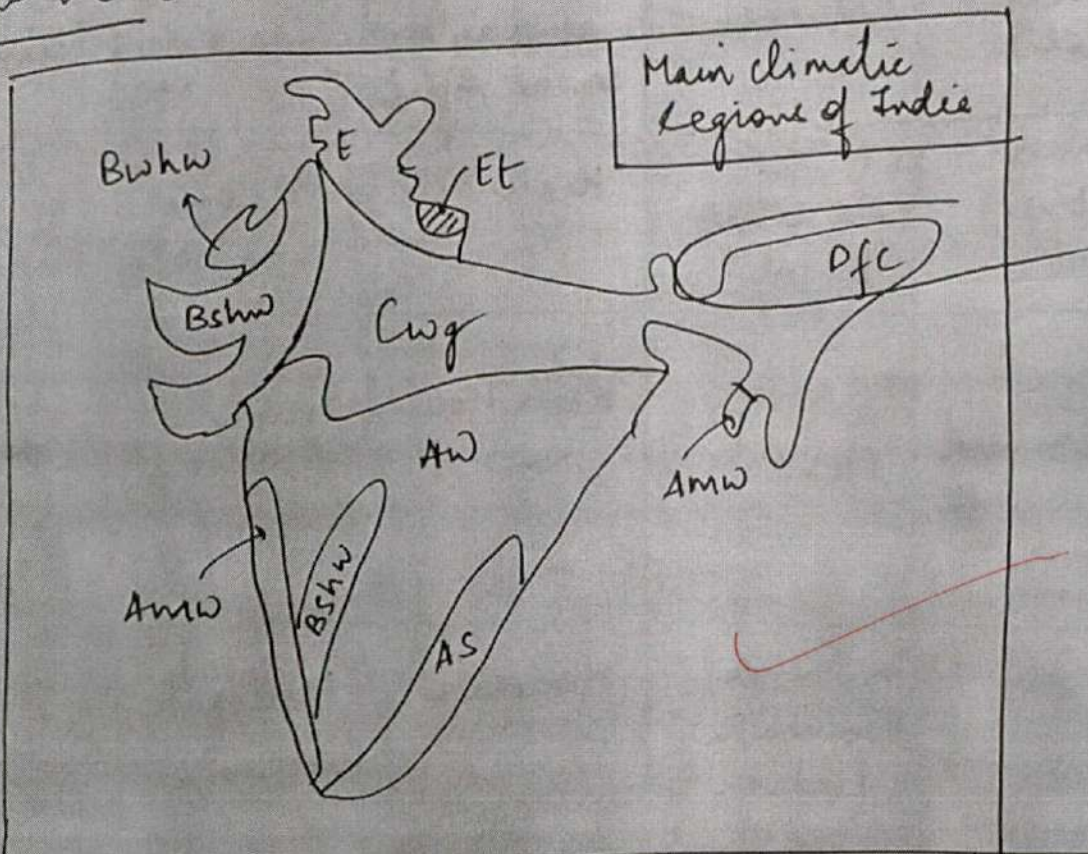 Main climatic
regions of India
E
Bwhw
Et
Dfc
Bshw
Cwg
AW
Amw
Bshw
Amw
AS